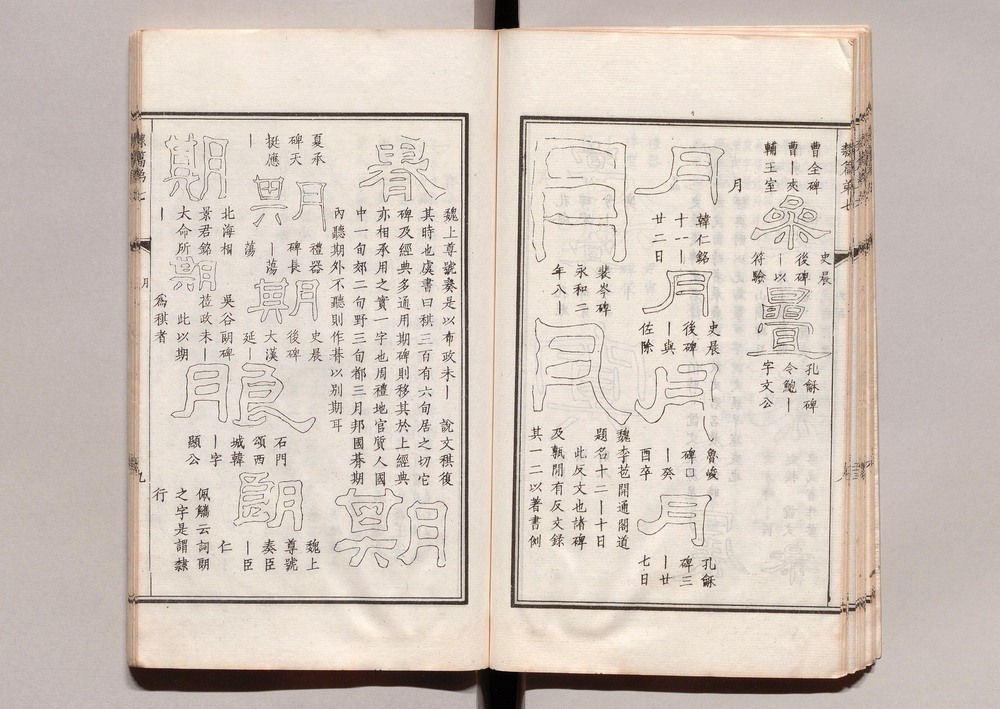 隸篇弟七
曹全碑
曹〡夾
輔王室
壘
史晨
後碑
〡以
符驗
疊
孔龢碑
令鮑〡
字文公
月
月
韓仁銘
十一〡
廿二日
月
史晨
後碑
〡與
佐除
月
魯峻
碑口
〡癸
酉卒
月
孔龢
碑三
〡廿
七日
月
裴岑碑
永和二
年八〡
月
魏李苞開通閣道
題名十二〡十日
此反文也諸碑
及甎閒有反文錄
其一二以著書例
朞
魏上尊號奏是以布政未〡
說文稘復
其時也虞書曰稘三百有六旬居之切它
碑及經典多通用期碑則移其於上經典
亦相承用之實一字也周禮地官質人國
中一旬郊二旬野三旬都三月邦國朞期
內聽期外不聽則作朞以別期耳
期
夏承
碑天
挺應
〡
期
禮器
碑長
〡蕩
蕩
期
史晨
後碑
大漢
延〡
期
北海相
景君銘
大命所
〡
期
吳谷朗碑
莅政未〡
此以期
爲稘者
朖
石門
頌西
城韓
〡字
顯公
朗
魏上
尊號
奏臣
〡臣
仁
佩觿云詞朗
之字是謂隸
行
月
九